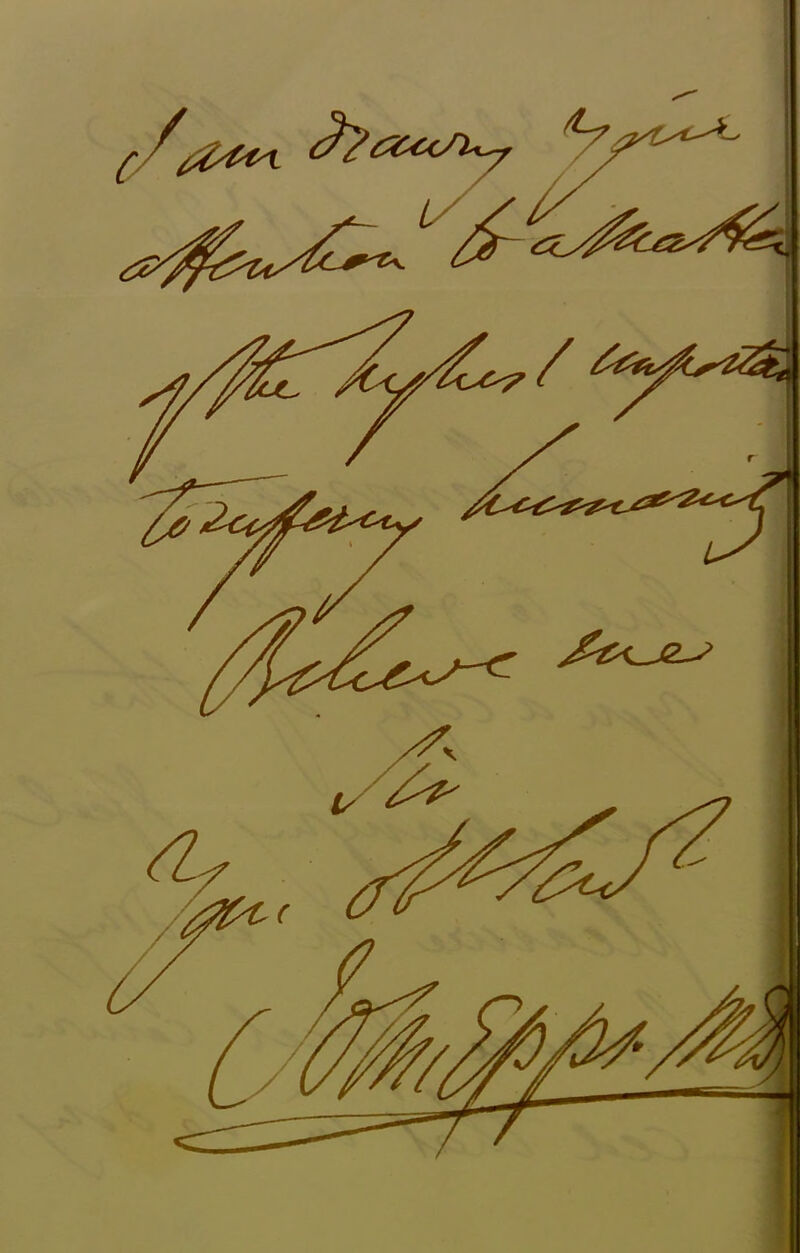 I am drawing your
attention to a matter
of the highest importance
to suffering humanity
Believe me
Sir
Yours obdtly
John Epps. MD